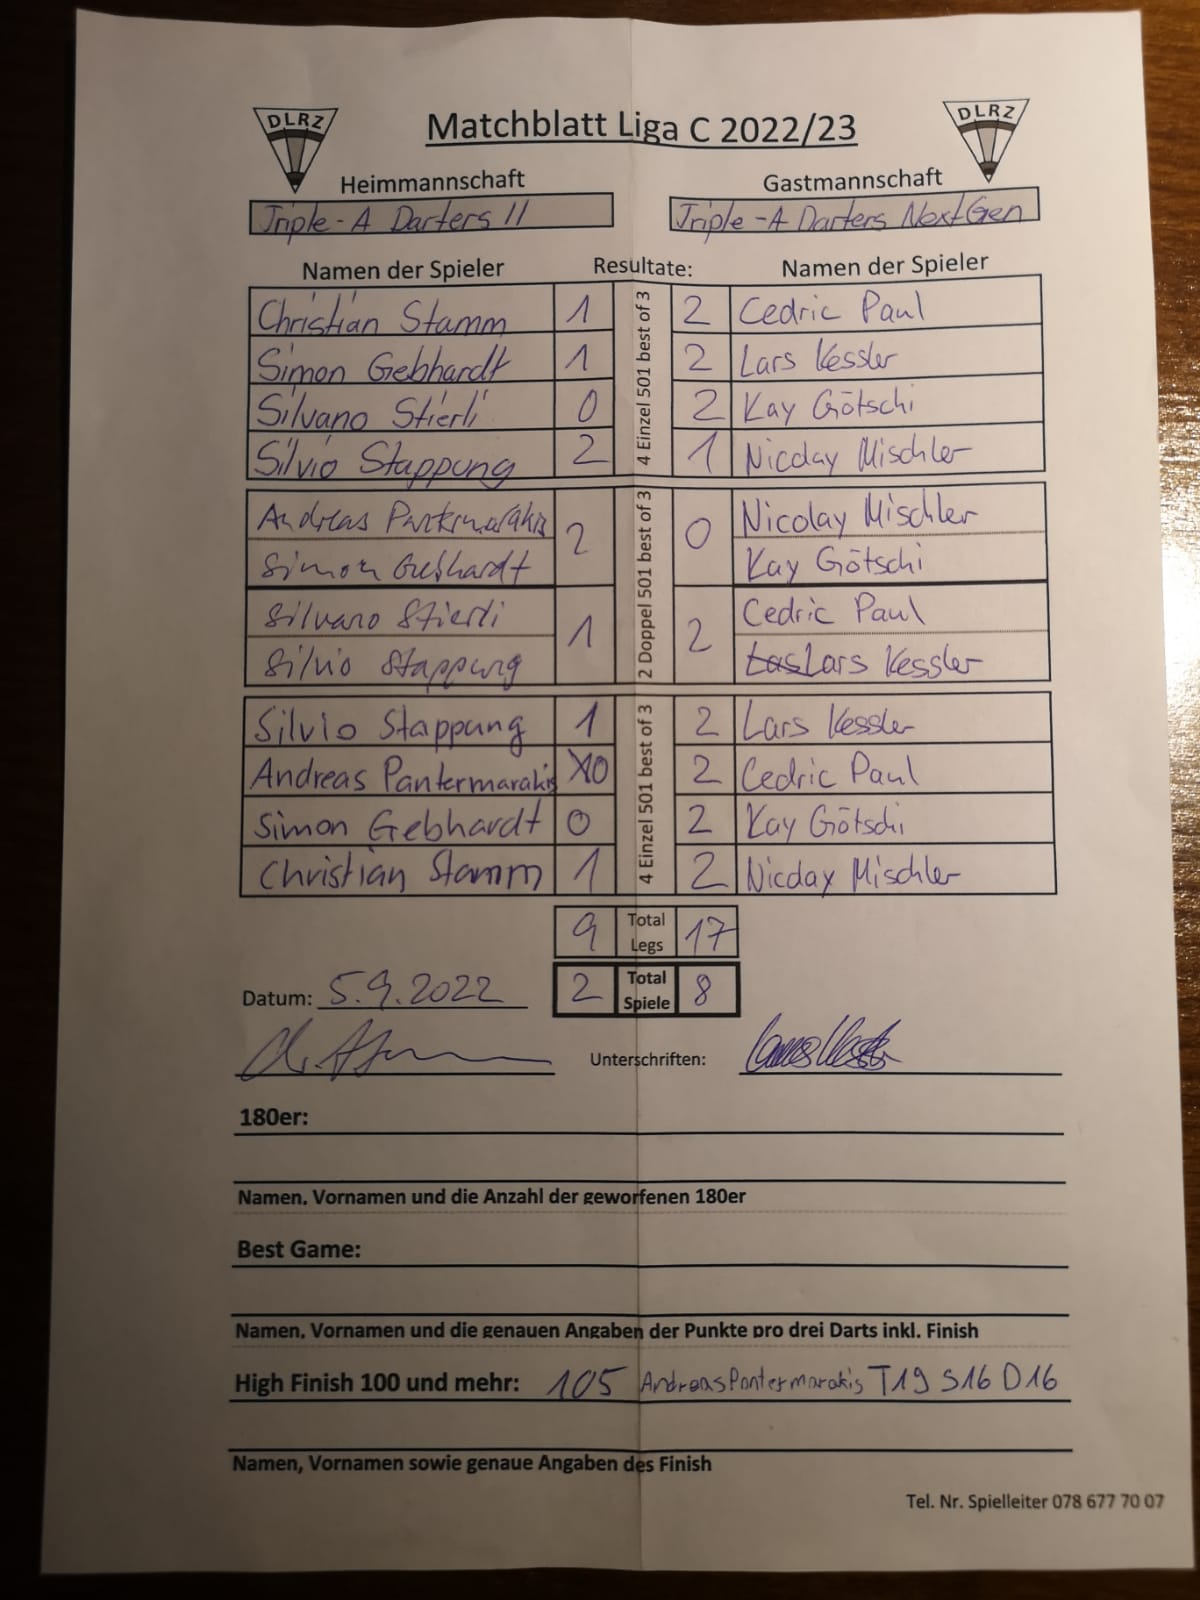 DLRZ Matchblatt Liga C 2022/23 DLRZ
Heimmannschaft Gastmannschaft
Triple-A Darters II Triple-A Darters NextGen
Namen der Spieler Resultate: Namen der Spieler
4 Einzel 501 best of 3
Christian Stamm 1 2 Cedric Paul
Simon Gebhardt 1 2 Lars Kessler
Silvano Stierli 0 2 Kay Götschi
Silvio Stappung 2 1 Nicolay Mischler
2 Doppel 501 best of 3
Andreas Pantermarakis 2 0 Nicolay Mischler
Simon Gebhardt Kay Götschi
Silvano Stierli 1 2 Cedric Paul
Silvio Stappung Lars Kessler
4 Einzel 501 best of 3
Silvio Stappung 1 2 Lars Kessler
Andreas Pantermarakis 0 2 Cedric Paul
Simon Gebhardt 0 2 Kay Götschi
Christian Stamm 1 2 Nicolay Mischler
9 Total Legs 17
Datum: 5.9.2022 2 Total Spiele 8
Unterschriften:
180er:
Namen, Vornamen und die Anzahl der geworfenen 180er
Best Game:
Namen, Vornamen und die genauen Angaben der Punkte pro drei Darts inkl. Finish
High Finish 100 und mehr: 105 Andreas Pantermarakis T19 S16 D16
Namen, Vornamen sowie genaue Angaben des Finish
Tel. Nr. Spielleiter 078 677 70 07